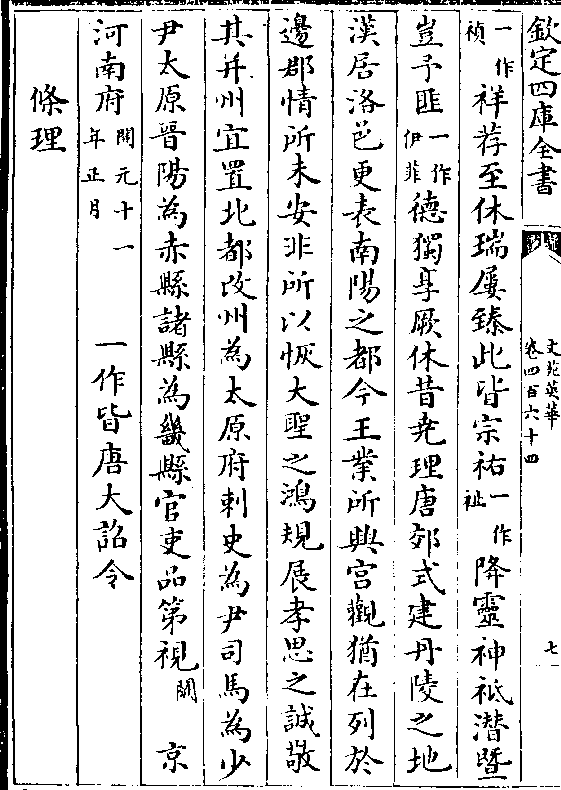 欽定四庫全書
文苑英華
卷四百六十四
七
一作禎祥荐至休瑞屢臻此皆宗祐一作祉降靈神祇潛暨
豈予匪一作伊菲德獨享厥休昔堯理唐郊式建丹陵之地
漢居洛邑更表南陽之都今王業所興宫觀猶在列於
邊郡情所未安非所以恢大聖之鴻規展孝思之誠敬
其并州宜置北都改州為太原府刺史為尹司馬為少
尹太原晉陽為赤縣諸縣為畿縣官吏品第視闕京
河南府開元十一年正月 一作皆唐大詔令
條理